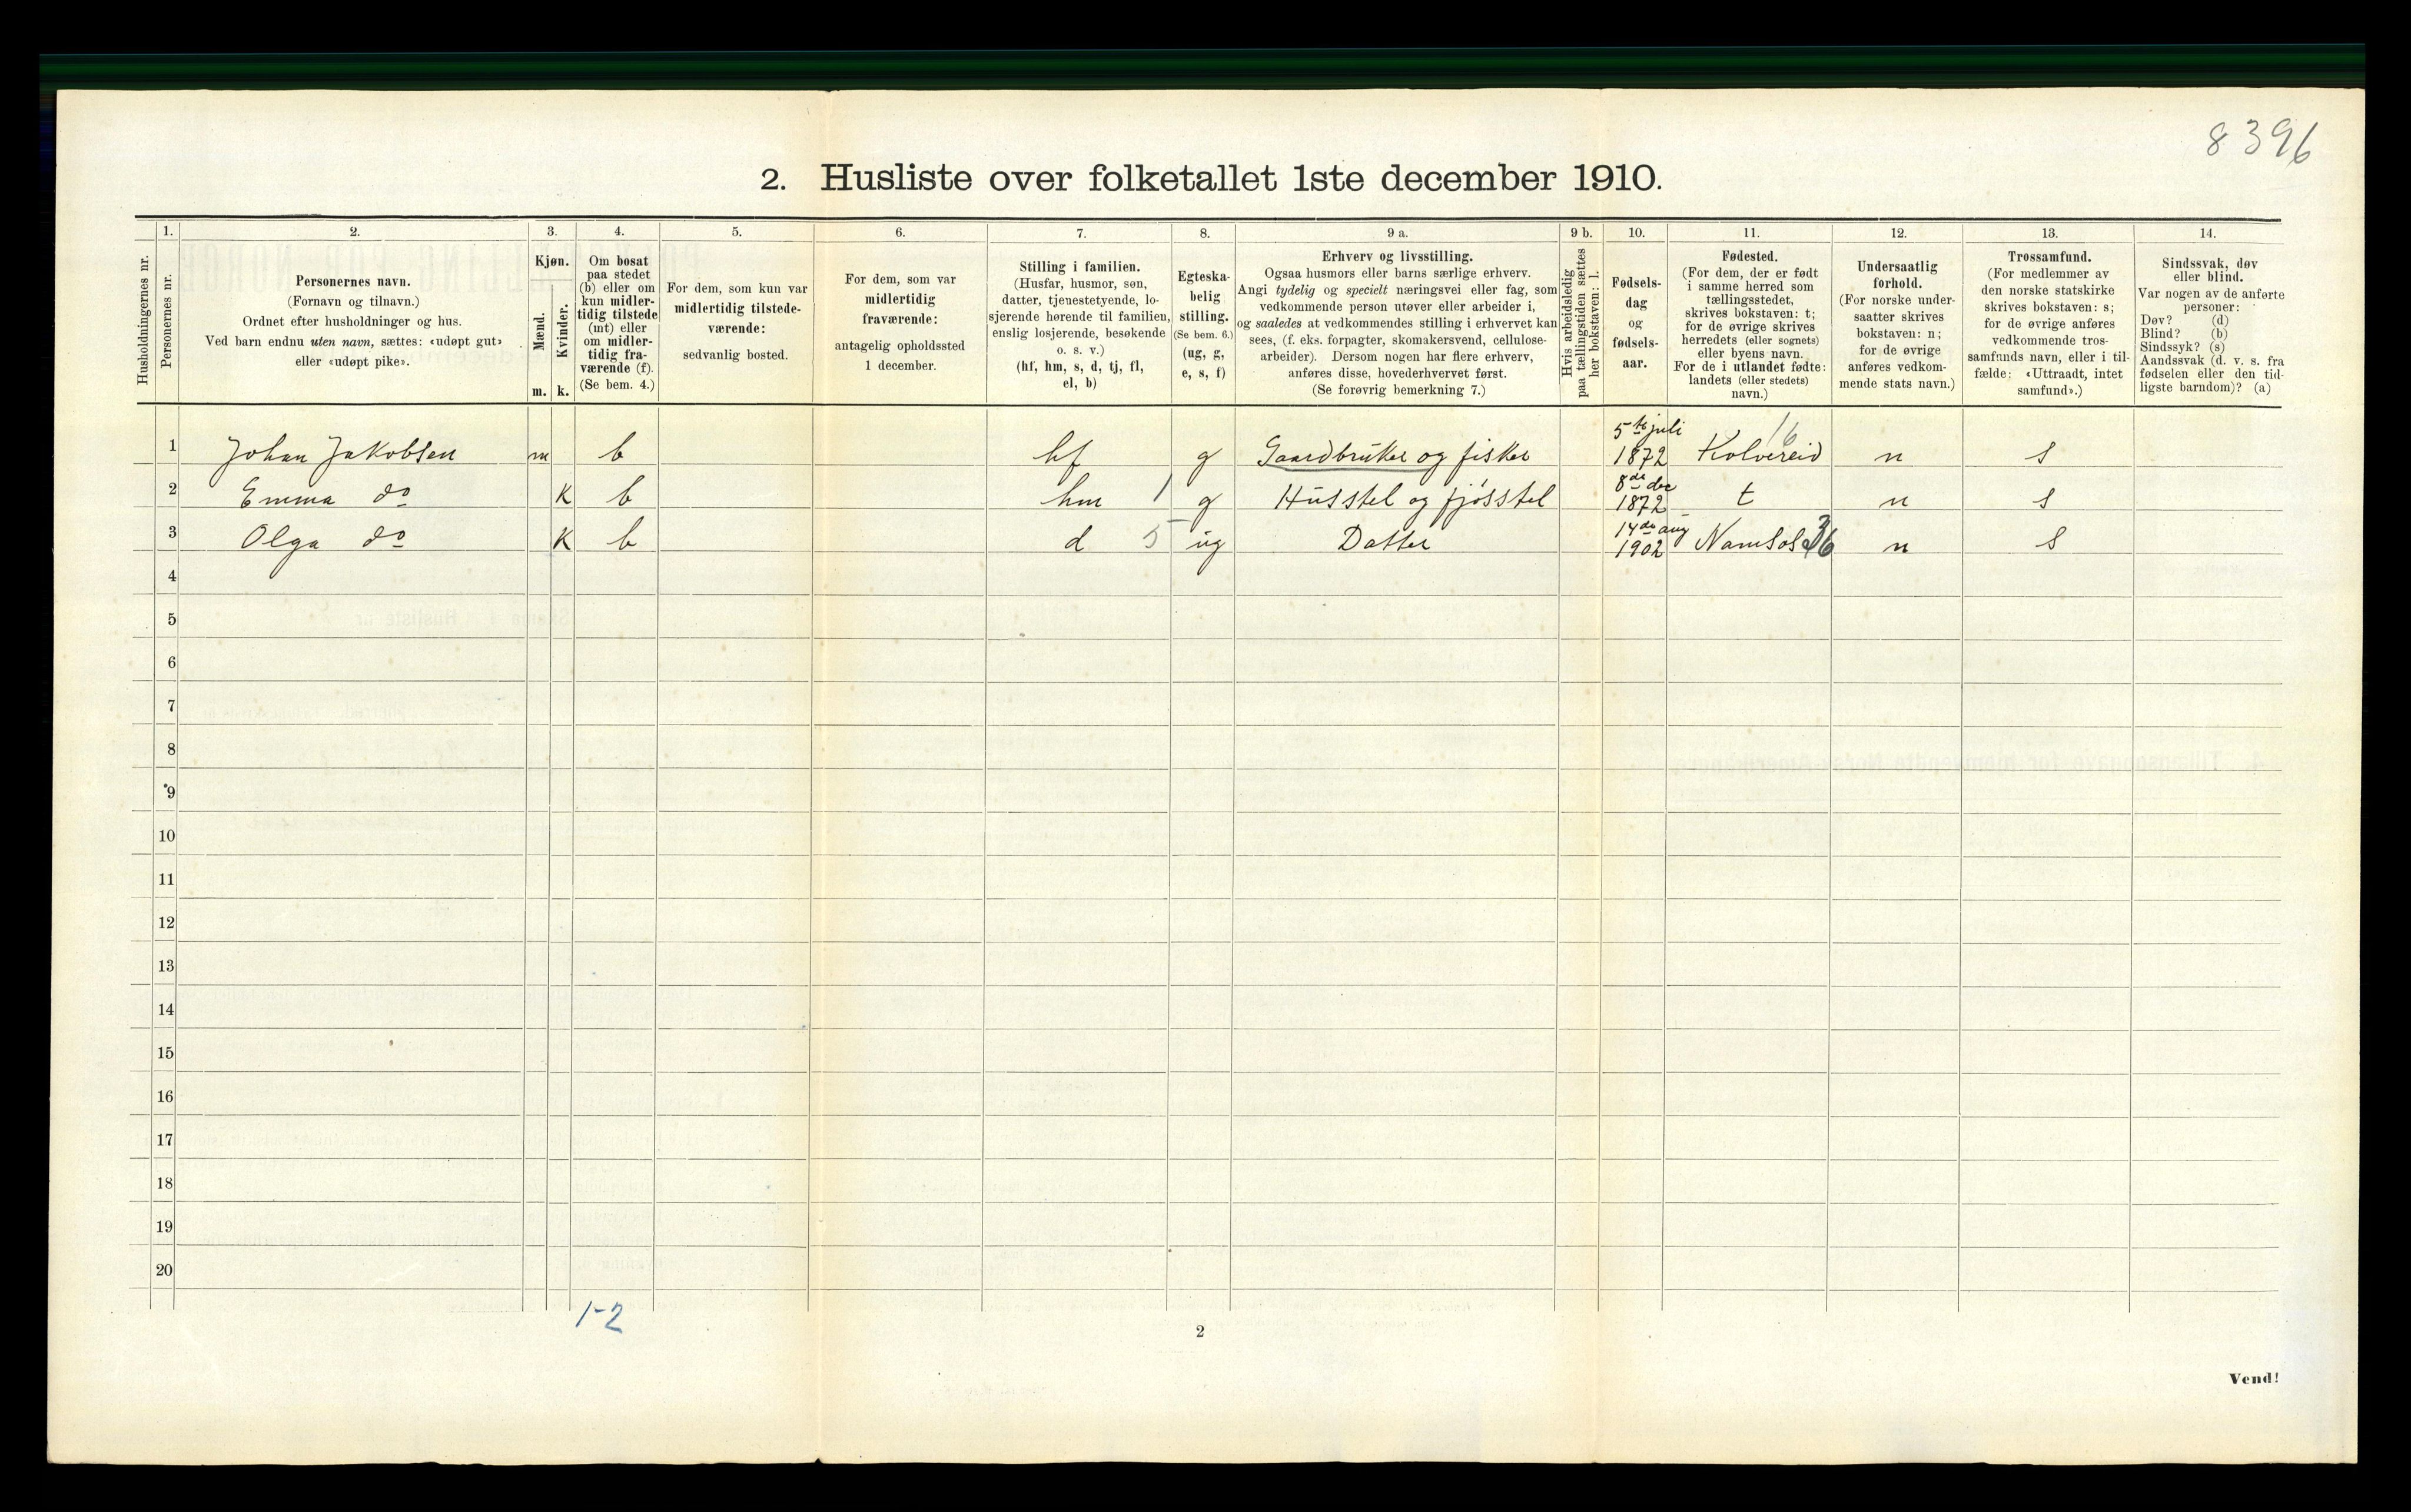 8396
2. Husliste over folketallet 1ste december 1910.
Husholdningernes nr.
1.
Personernes nr.
2.
Personernes navn.
(Fornavn og tilnavn.)
Ordnet efter husholdninger og hus.
Ved barn endnu uten navn, sættes: «udøpt gut»
eller «udøpt pike».
3.
Kjøn.
Mænd.
m.
Kvinder.
k.
4.
Om bosat
paa stedet
(b) eller om
kun midler-
tidig tilstede
(mt) eller
om midler-
tidig fra-
værende (f).
(Se bem. 4.)
5.
For dem, som kun var
midlertidig tilstede-
værende:
sedvanlig bosted.
6.
For dem, som var
midlertidig
fraværende:
antagelig opholdssted
1 december.
7.
Stilling i familien.
(Husfar, husmor, søn,
datter, tjenestetyende, lo-
sjerende hørende til familien,
enslig losjerende, besøkende
o. s. v.)
(hf, hm, s, d, tj, fl,
el, b)
8.
Egteska-
belig
stilling.
(Se bem. 6.)
(ug, g,
e, s, f)
9 a.
Erhverv og livsstilling.
Ogsaa husmors eller barns særlige erhverv.
Angi tydelig og specielt næringsvei eller fag, som
vedkommende person utøver eller arbeider i,
og saaledes at vedkommendes stilling i erhvervet kan
sees, (f. eks. forpagter, skomakersvend, cellulose-
arbeider). Dersom nogen har flere erhverv,
anføres disse, hovederhvervet først.
(Se forøvrig bemerkning 7.)
9 b.
Hvis arbeidsledig
paa tællingstiden sættes
her bokstaven: l.
10.
Fødsels-
dag
og
fødsels-
aar.
11.
Fødested.
(For dem, der er født
i samme herred som
tællingsstedet,
skrives bokstaven: t;
for de øvrige skrives
herredets (eller sognets)
eller byens navn.
For de i utlandet fødte:
landets (eller stedets)
navn.)
12.
Undersaatlig
forhold.
(For norske under-
saatter skrives
bokstaven: n;
for de øvrige
anføres vedkom-
mende stats navn.)
13.
Trossamfund.
(For medlemmer av
den norske statskirke
skrives bokstaven: s;
for de øvrige anføres
vedkommende tros-
samfunds navn, eller i til-
fælde: «Uttraadt, intet
samfund».)
14.
Sindssvak, døv
eller blind.
Var nogen av de anførte
personer:
Døv? (d)
Blind? (b)
Sindssyk? (s)
Aandssvak (d. v. s. fra
fødselen eller den tid-
ligste barndom)? (a)
1 Johan Jakobsen m b hf g Gaardbruker og fisker 5te juli 1872 Kolvereid 16 n s
2 Emma do K b hm 1 g Husstel og fjøsstel 8de dec 1872 t n s
3 Olga do K b d 5 ug Datter 14de aug 1902 Namsos 36 n s
4
5
6
7
8
9
10
11
12
13
14
15
16
17
18
19
20
1-2
2
Vend!